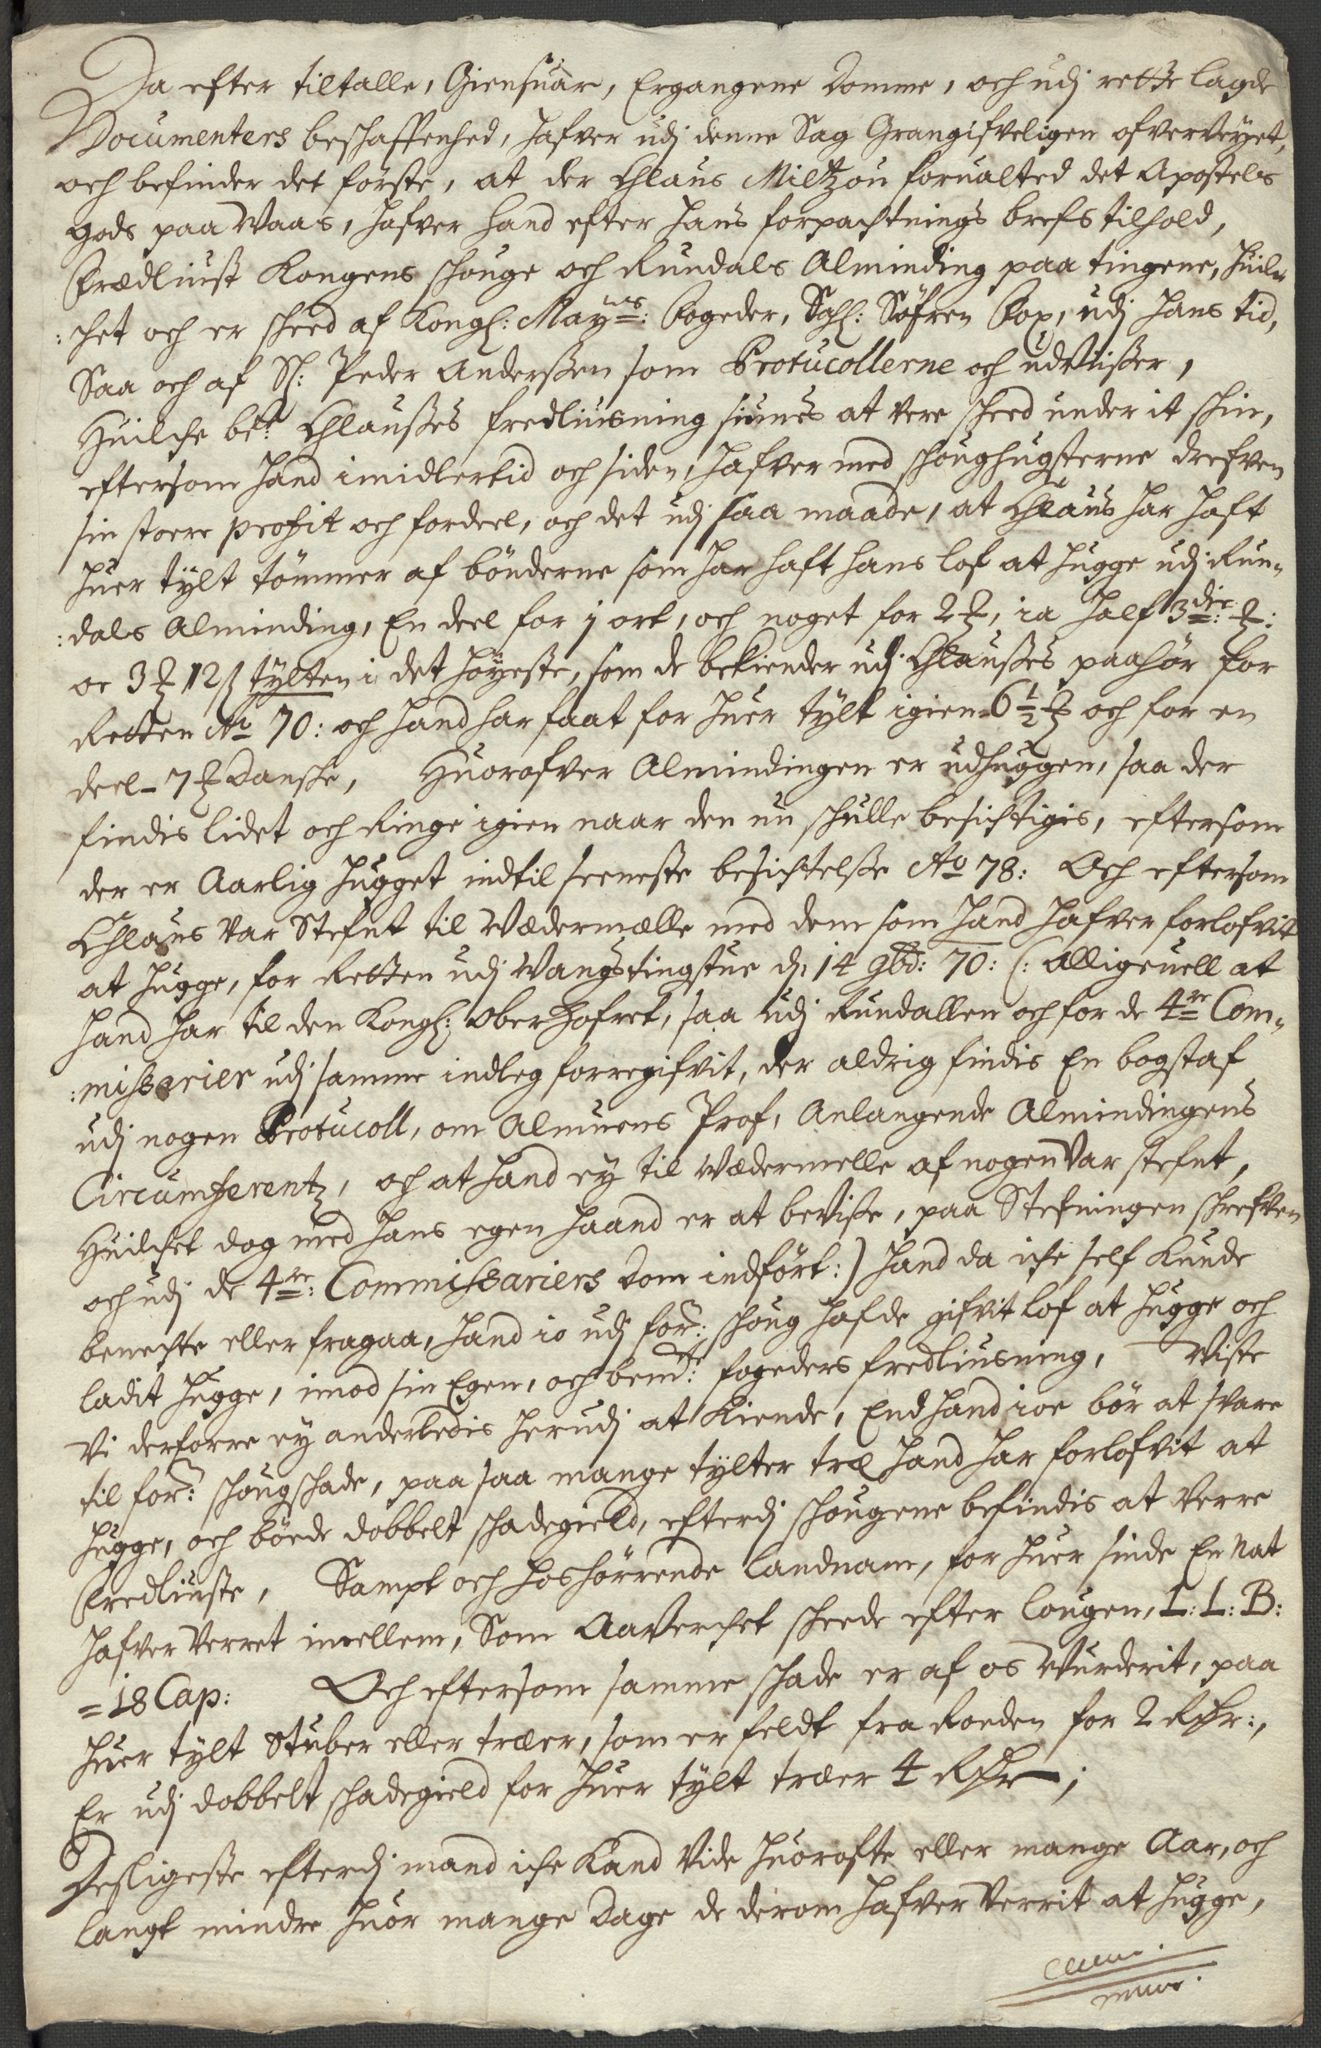 Da efter tiltalle, Giensuar, Ergangene Domme, och udj rette lagde
Documenters beschaffenhed, hafver udj denne Sag Grangifveligen ofverveyet,
och befinder det förste, at der Chlaus Miltzou forualted det Apostels
gods paa Waas, hafver hand efter hans forpachtnings brefs tilhold,
Frædliust Kongens schouge och Rundals Alminding paa tingene, huil¬
:chet och er scheed af Kongl: Mayts: Fogeder, Sahl: Söfren Fox, udj hans tid,
Saa och af Sl: Peder Anderssen som Protucollerne och udViisser,
Huilche bete Chlausses fredliusning siunes at vere scheed under it schin,
eftersom hand imidlertid och siden, hafver med schoughugsterne drefven
sin stoere profit och fordeel, och det udj saa maade, at Chlaus har haft
huer tylt tömmer af bönderne som har haft hans lof at hugge udj Run¬
:dals Alminding, En deel for j ort, och noget for 2 ₰, ia half 3die: ₰:
oc 3 ₰ 12 ß tylten i det höyeste, som de bekiender udj Chlausses paahör for
Retten Ao 70: och hand har faat for huer tylt igien 6½ ₰ och for en
deel 7 ₰ Dansche, Huorofver Almindingen er udhuggen, saa der
findis lidet och Ringe igien naar den nu schulle besichtigis, eftersom
der er Aarlig hugget indtil seeneste besichtelsse Ao 78: Och eftersom
Chlaus var Stefnt til Vædermælle med dem som hand hafver forlofvit
at hugge, for Retten udj Wangstingstue d: 14 9bd: 70: (: alligeuell at
hand har til den Kongl: Ober Hofret, saa udj Rundallen och for de 4re Com¬
:missarier udj samme indleg forregifvit, der aldrig findis En bogstaf
udj nogen Protucoll, om Almuens Prof, Anlangende Almindingens
Circumferentz, och at hand ey til Vædermelle af nogen Var stefnt,
Huilchet dog med hans egen haand er at bevisse, paa Stefningen schrefven
och udj de 4re: Commissariers Dom indfört:) hand da iche self Kunde
benechte eller fragaa, hand io udj forne: schoug hafde gifvit lof at hugge och
ladit hugge, imod sin Egen, och bemte: fogeders fredliusning, Viste
Vi derforre ey anderledis herudj at Kiende, End hand ioe bör at svare
til forne: schougschade, paa saa mange tylter træ hand har forlofvit at
hugge, och böede dobbelt schadegield, efterdj schougene befindis at Verre
fredliuste, Sampt och hoshörrende landnam, for huer sinde En Nat
hafver Verret imellem, Som Aaverchet scheede efter lougen, L: L: B:
=18 Cap: Och eftersom samme schade er af os Vurderit, paa
huer tylt Stuber eller træer, som er feldt fra Roeden for 2 Rdr:,
Er udj dobbelt schadegield for huer tylt træer 4 Rdr;
Desligeste efterdj mand iche Kand Vide huorofte eller mange Aar, och
langt mindre huor mange Dage de derom hafver Verrit at hugge,